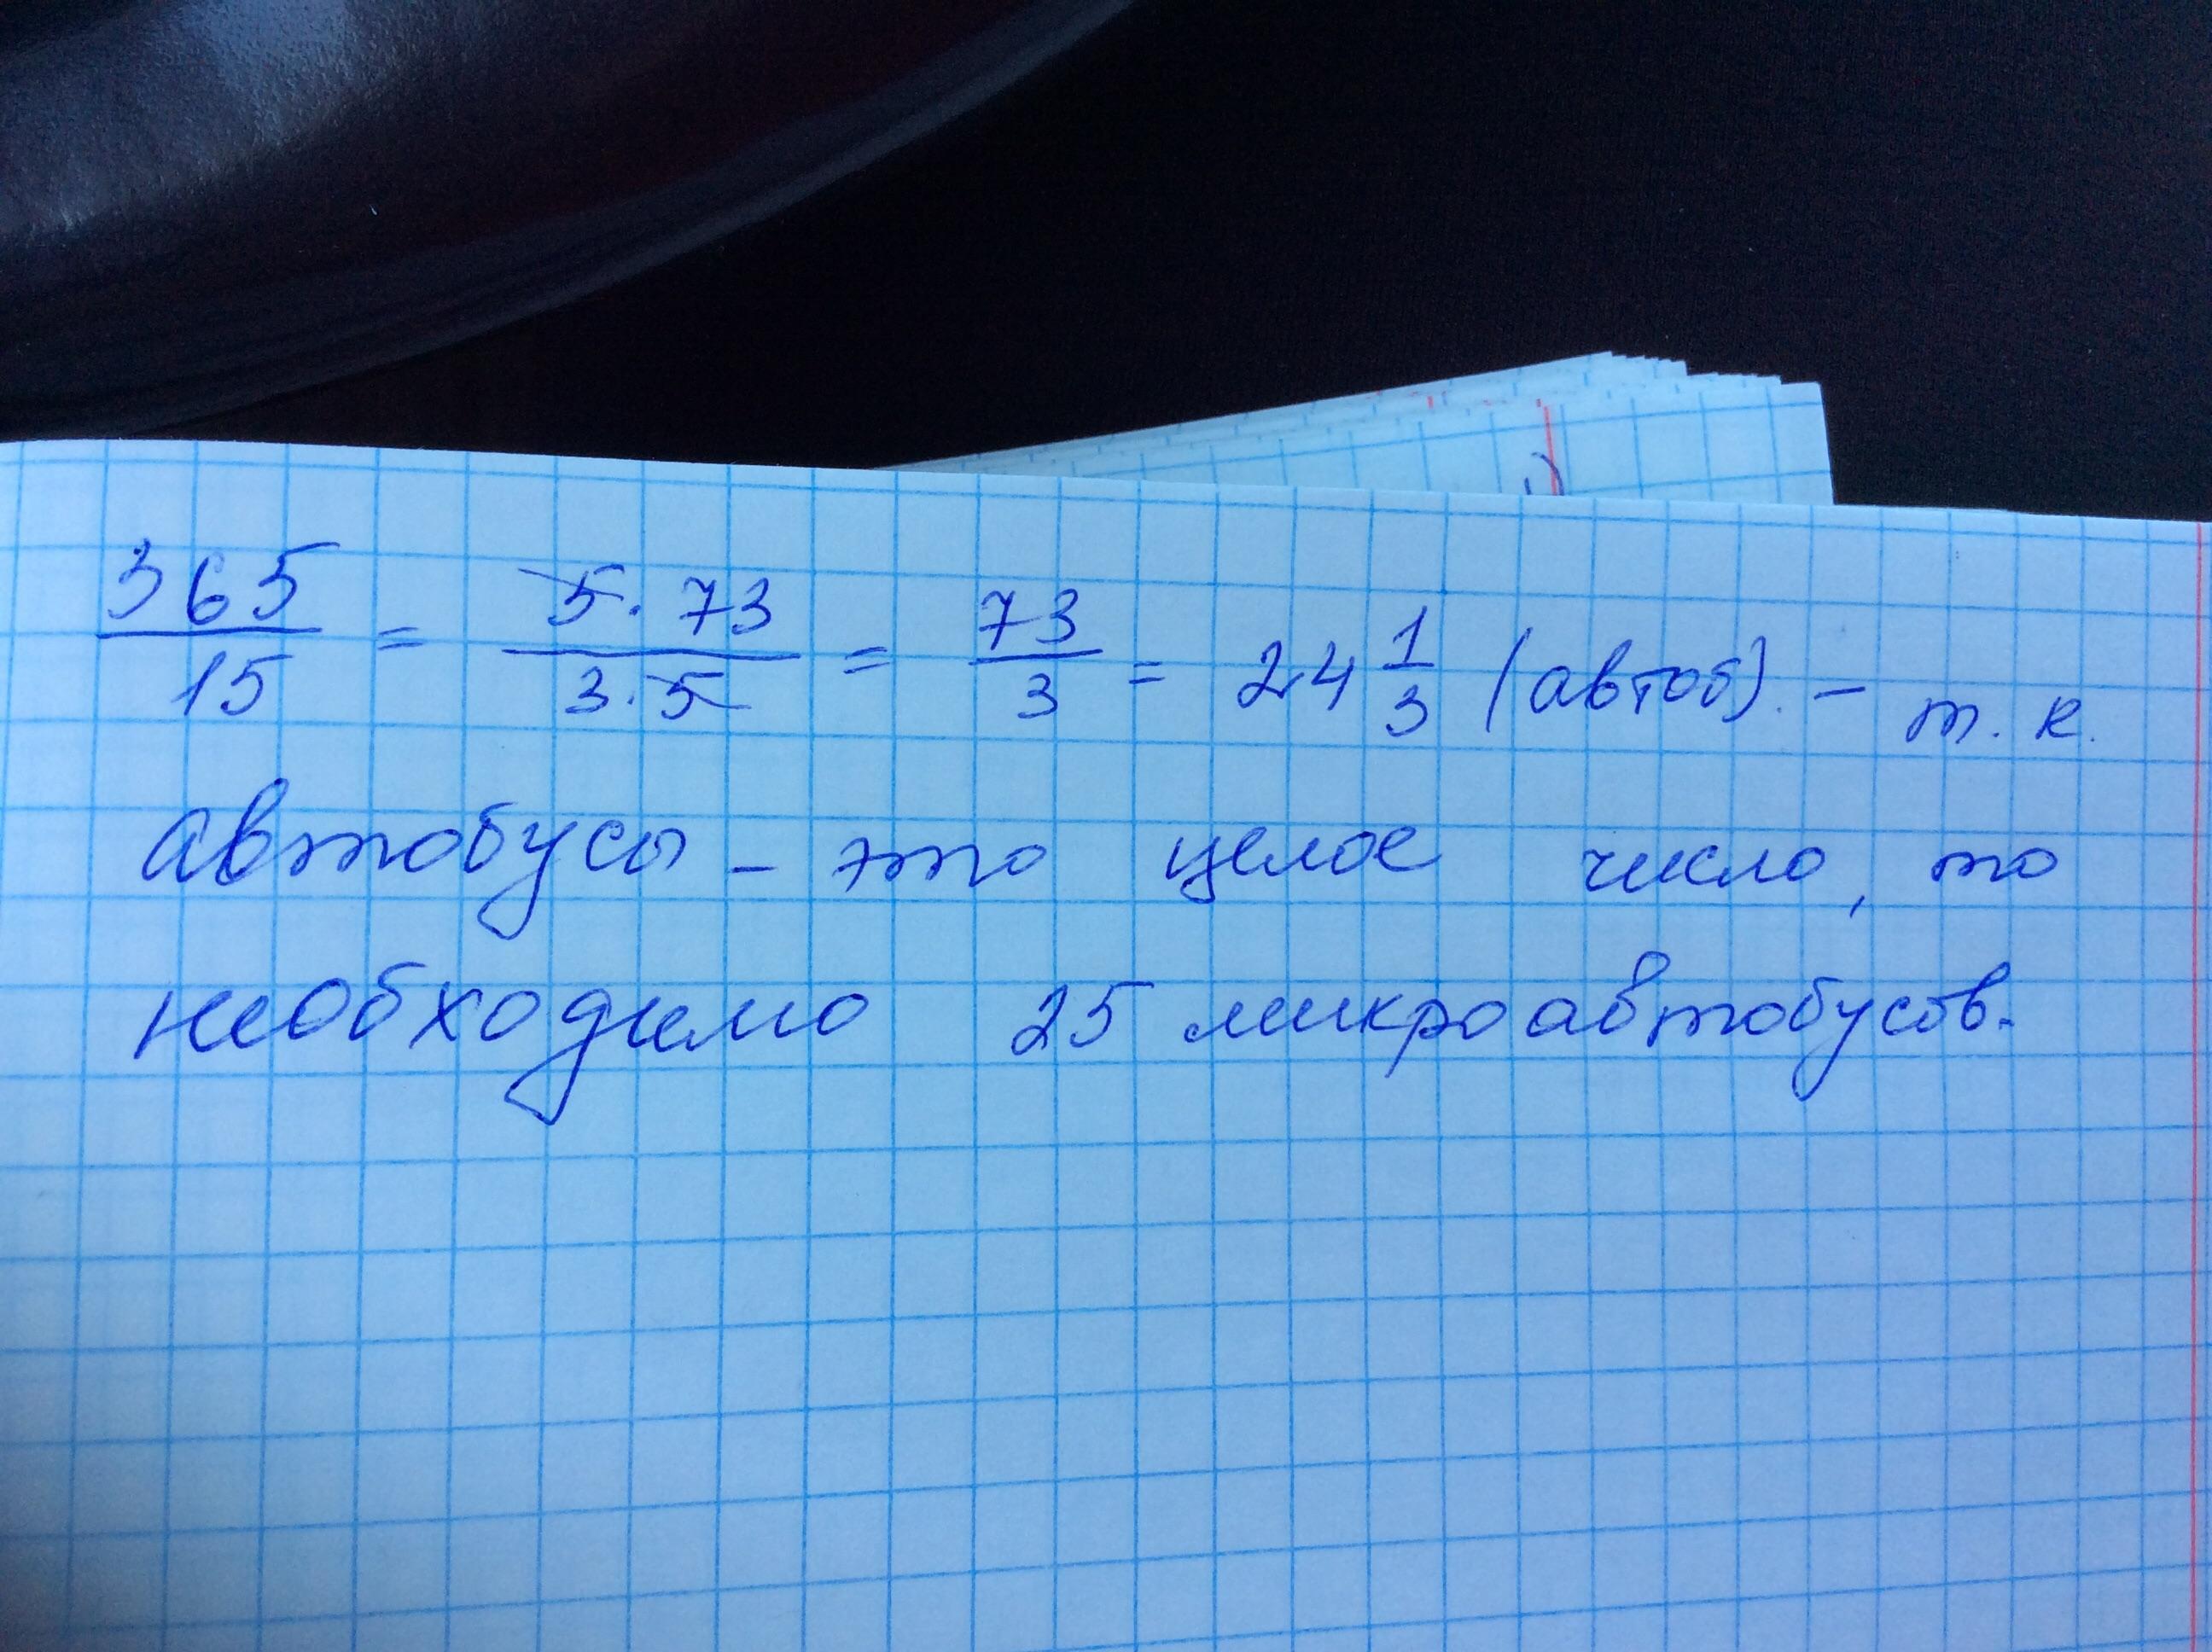 365/15 = 5·73/3·5 = 73/3 = 24 1/3 (автоб). – т. к.
автобусы – это целое число, то
необходимо 25 микроавтобусов.